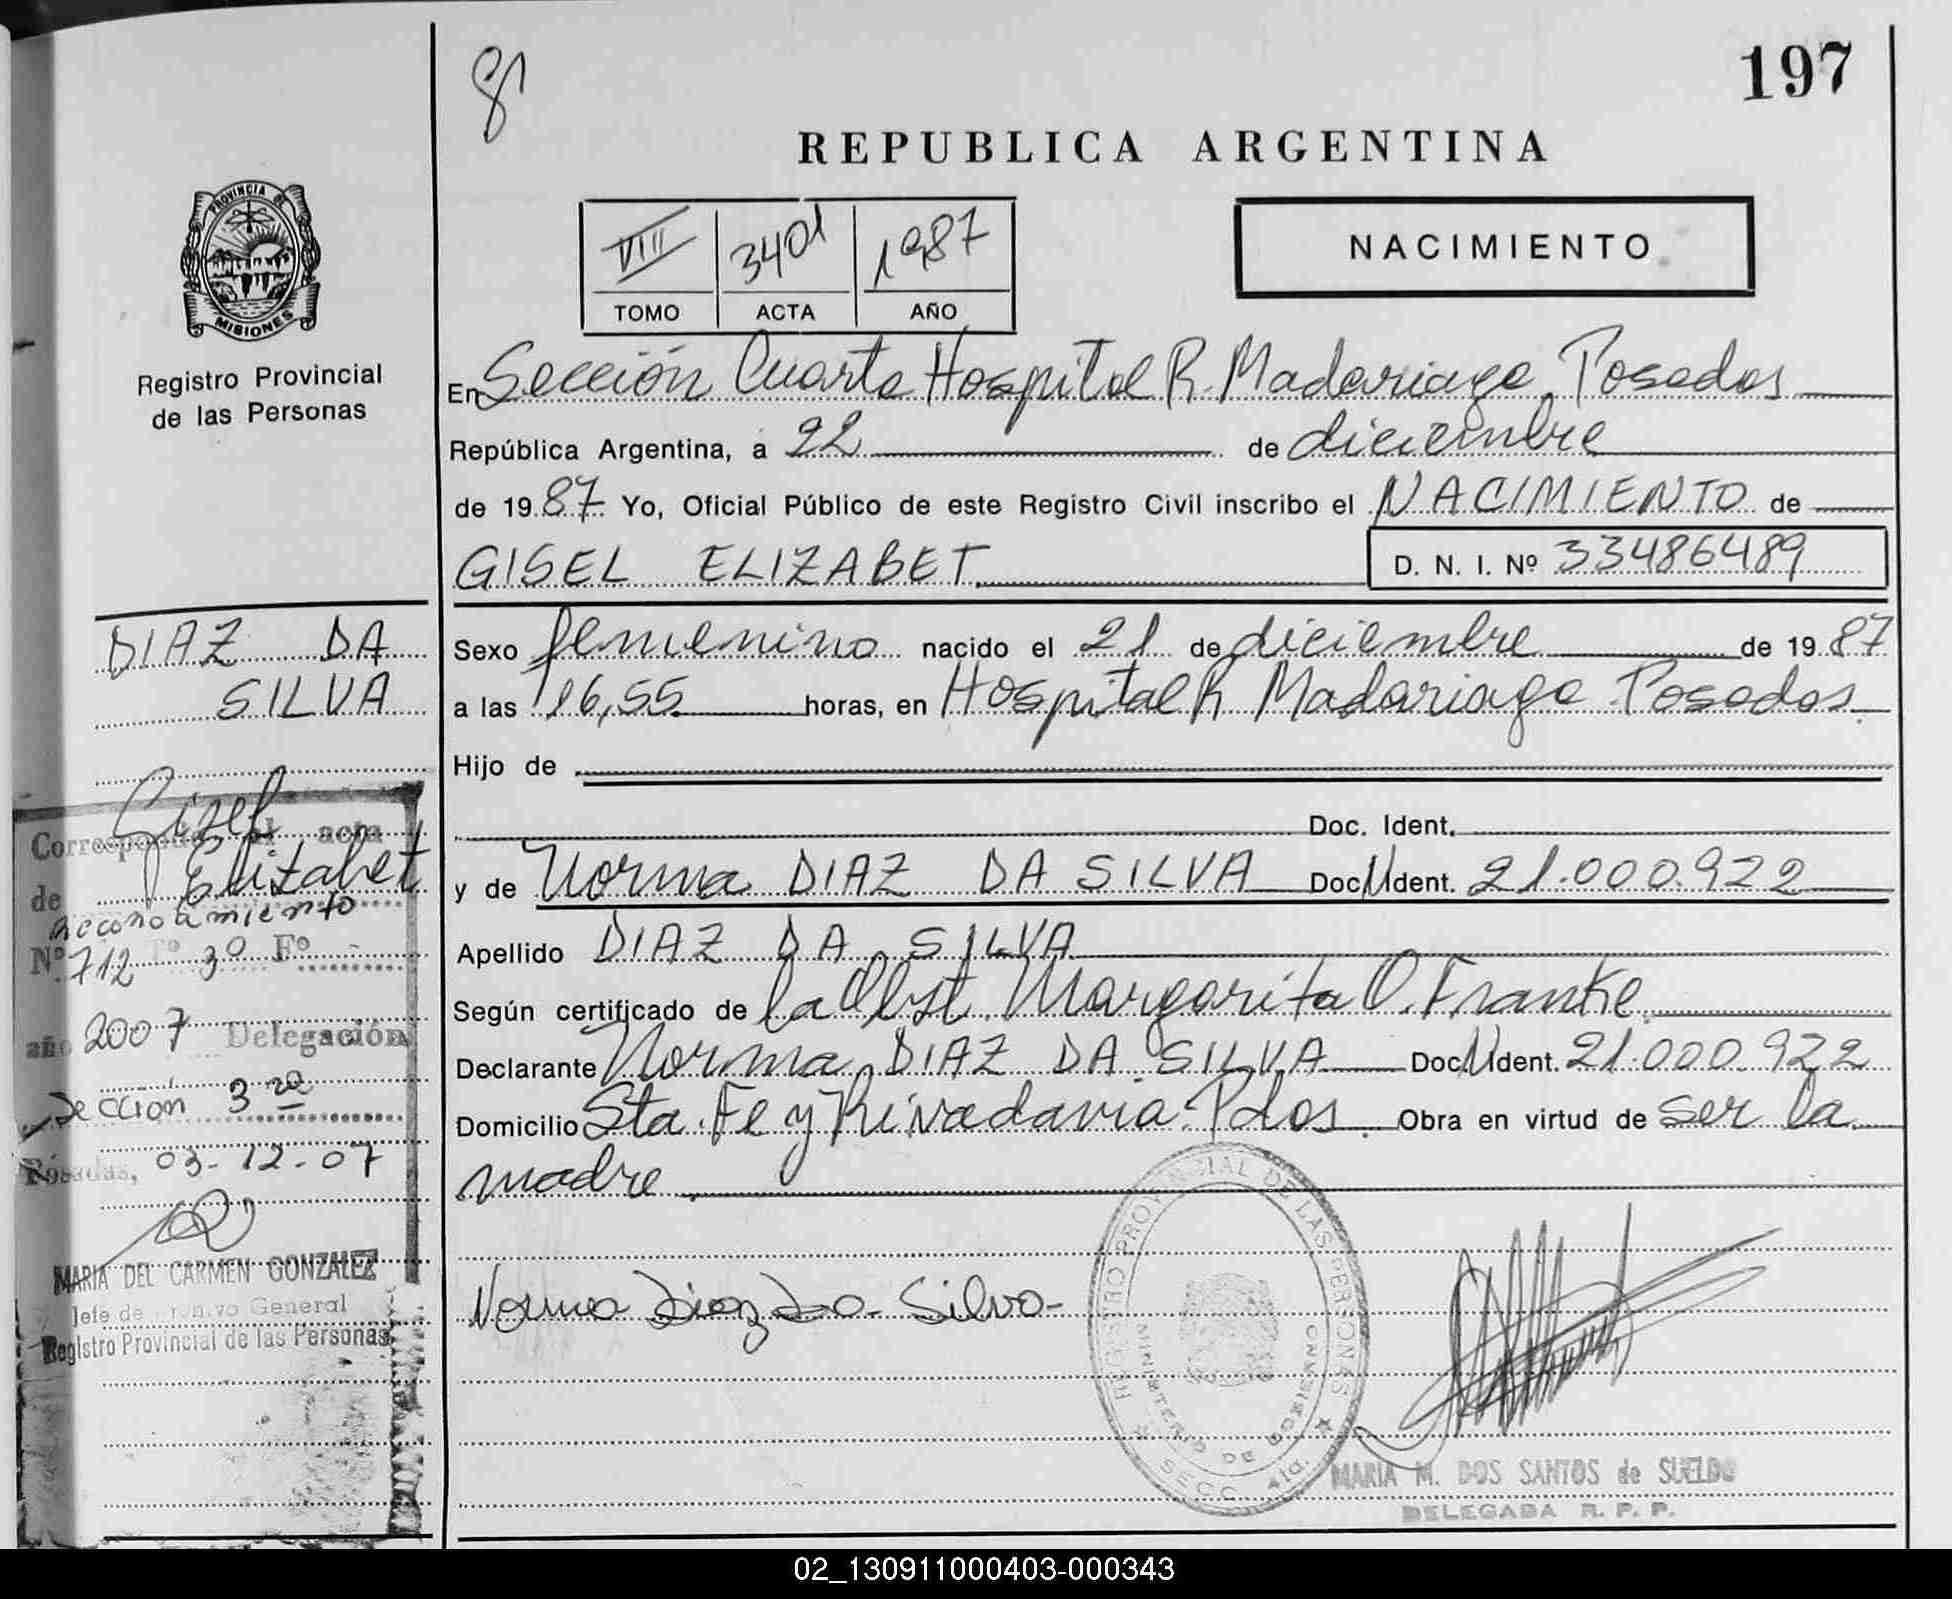 197
8
REPUBLICA ARGENTINA
PROVINCIA DE
MISIONES
Registro Provincial
de las Personas
VIII 3401 1987
TOMO ACTA AÑO
NACIMIENTO
En Sección Cuarta Hospital R. Madariaga Posadas
República Argentina, a 22 de diciembre
de 1987 Yo, Oficial Público de este Registro Civil inscribo el NACIMIENTO de
GISEL ELIZABET D. N. I. Nº 33486489
Sexo femenino nacido el 21 de diciembre de 1987
a las 16,55 horas, en Hospital R Madariaga Posadas
Hijo de
Doc. Ident.
y de Norma DIAZ DA SILVA Doc. Ident. 21.000.922
Apellido DIAZ DA SILVA
Según certificado de la Obst. Margarita O. Franke
Declarante Norma DIAZ DA SILVA Doc. Ident. 21.000.922
Domicilio Sta. Fe y Rivadavia. Pdas. Obra en virtud de ser la
madre
Norma Diaz Da Silva
REGISTRO PROVINCIAL DE LAS PERSONAS
MINISTERIO DE GOBIERNO
MARIA M. DOS SANTOS de SUELDO
DELEGADA R. P. P.
DIAZ DA
SILVA
Gisel
Elizabet
Corresponde al acta
de
Reconocimiento
Nº 712 Tº 3º Fº
año 2007 Delegación
Sección 3ra
Posadas, 03-12-07
MARIA DEL CARMEN GONZALEZ
Jefe de Archivo General
Registro Provincial de las Personas
02_130911000403-000343